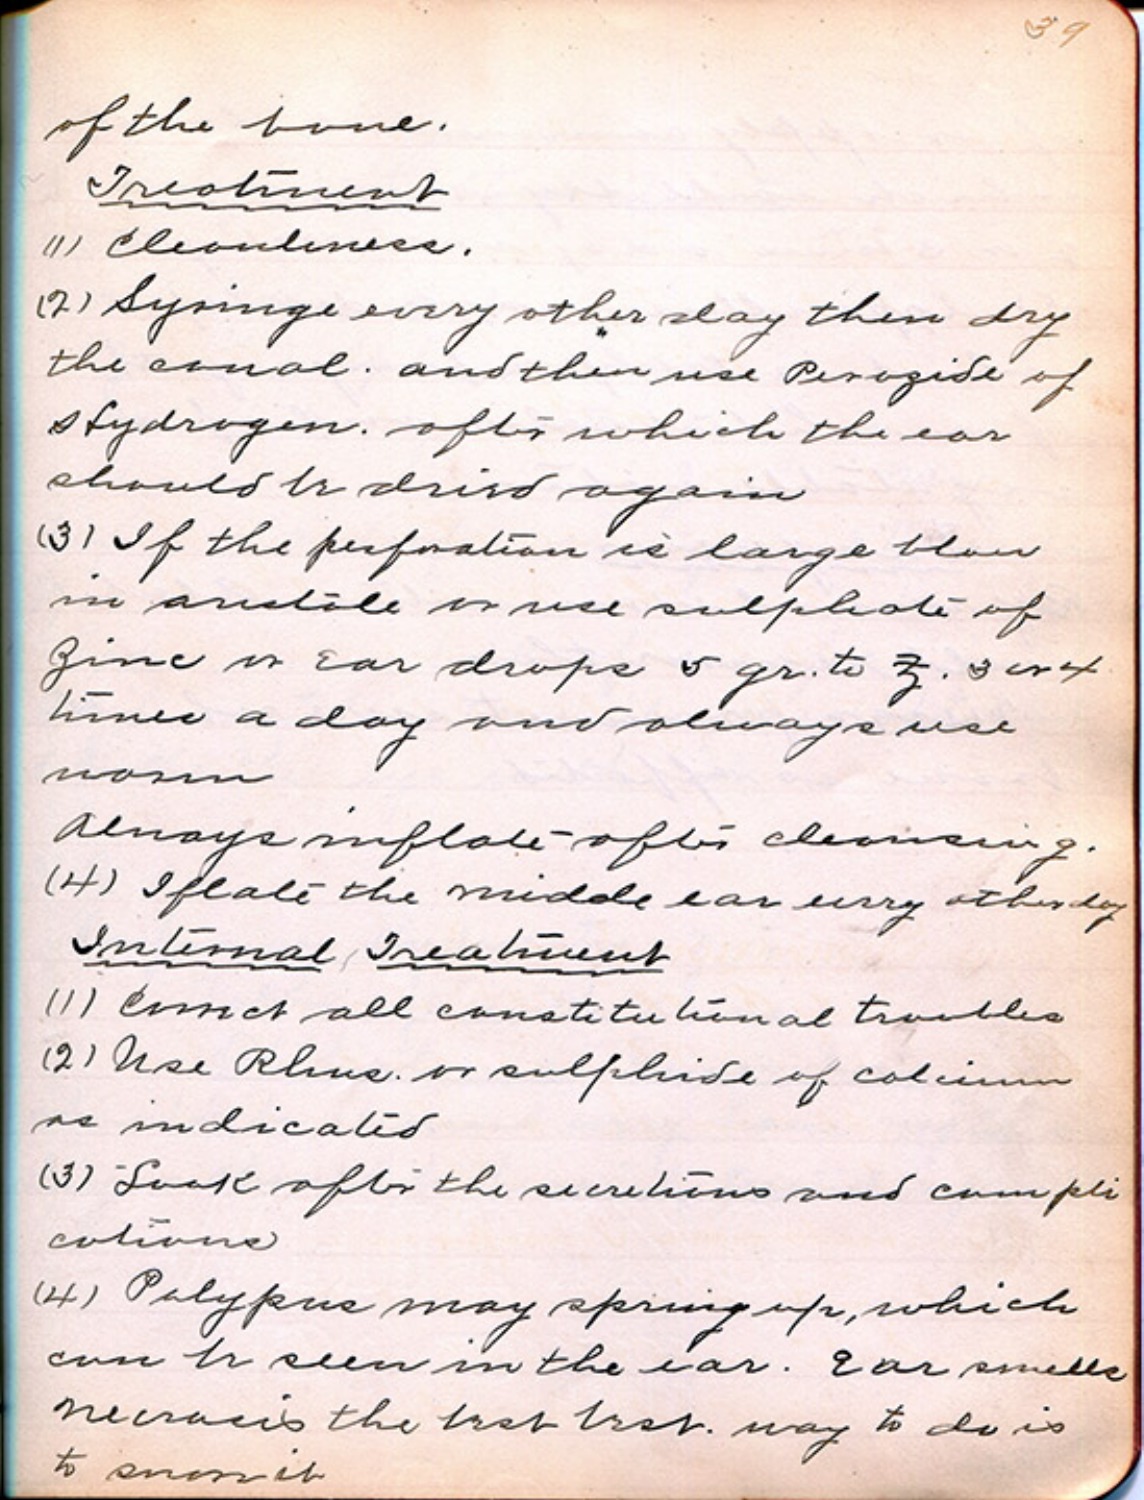 39
of the bone.
Treatment
(1) Cleanliness.
(2) Syringe every other day then dry
the canal. and then use Peroxide of
Hydrogen. after which the ear
should be dried again
(3) If the perforation is large blow
in aristole or use sulphate of
Zinc or Ear drops 5 gr. to ℥. 3 or 4
times a day and always use
warm
Always inflate after cleansing.
(4) Iflate the middle ear every other day
Internal Treatment
(1) Correct all constitutional troubles
(2) Use Rhus. or sulphide of calcium
as indicated
(3) Look after the secretions and compli
cations
(4) Polypus may spring up, which
can be seen in the ear. Ear smells
necrosis the best best. way to do is
to